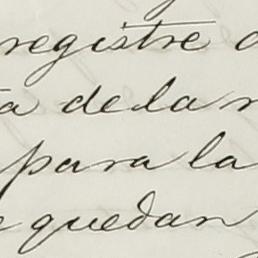 registre
de la
para la
quedan